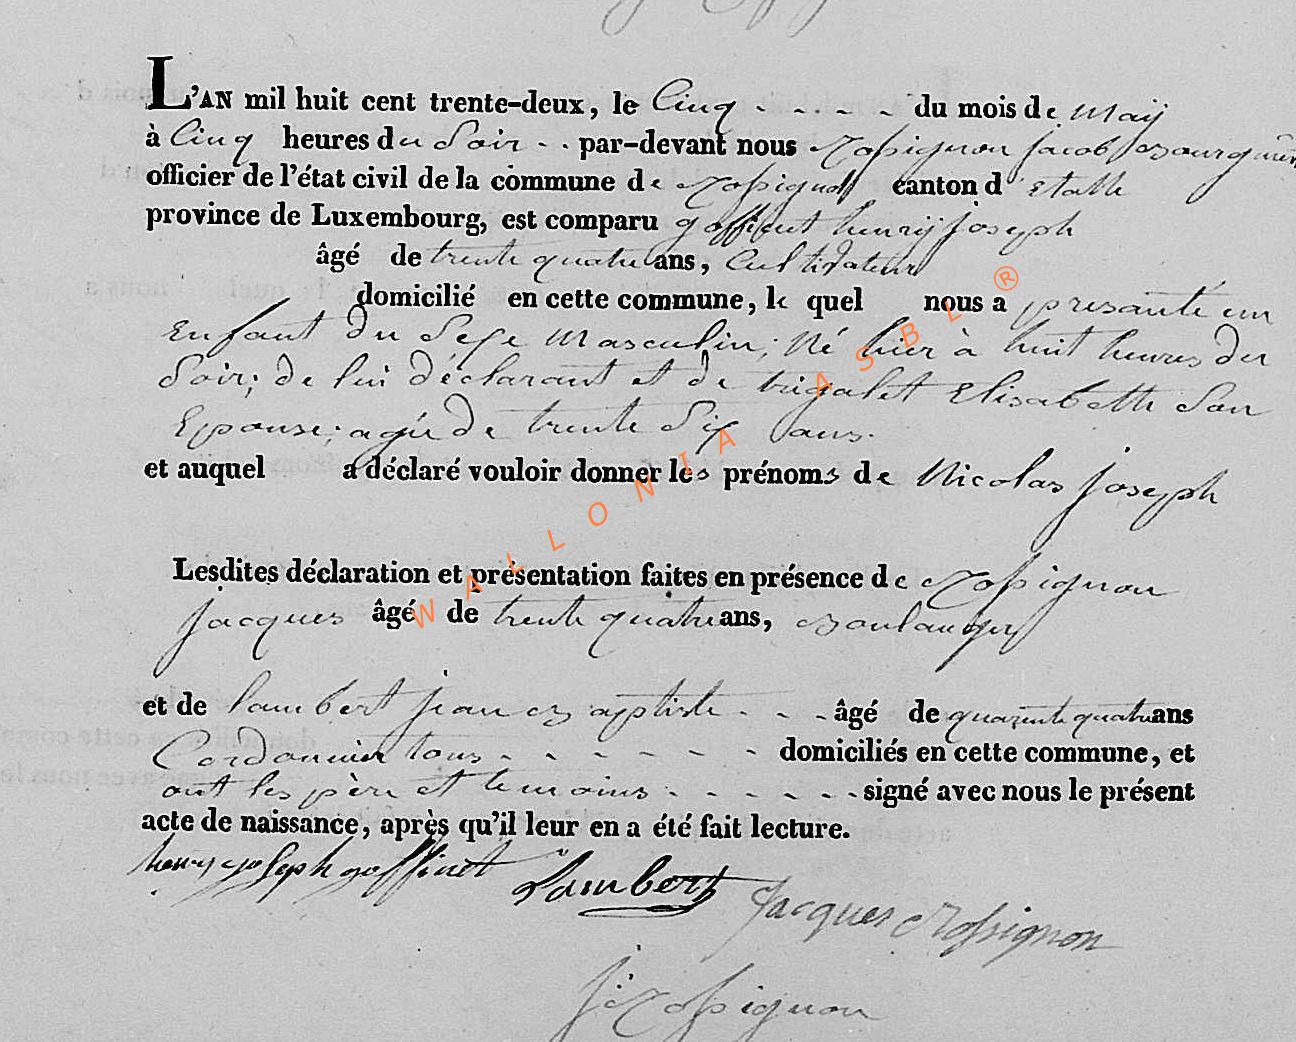 L'AN mil huit cent trente-deux, le Cinq - - - - du mois de Maÿ
à Cinq heures du Soir - - par-devant nous Rossignon Jacob Bourgmestre
officier de l'état civil de la commune de Rossignol canton d'Etalle
province de Luxembourg, est comparu goffinet henrÿ Joseph
âgé de trente quatre ans, Cultivateur
domicilié en cette commune, le quel nous a présanté un
Enfant du Sexe Masculin; Né hier à huit heures du
Soir; de lui déclarant et de trigalet Elisabette Son
Epouse; agée de trente Six ans.
et auquel a déclaré vouloir donner les prénoms de Nicolas Joseph
Lesdites déclaration et présentation faites en présence de Rossignon
Jacques âgé de trente quatre ans, Boulanger
et de lambert Jean Baptiste - - - âgé de quarente quatre ans
Cordonnier tous - - - - - - domiciliés en cette commune, et
ont les père et temoins - - - - - - signé avec nous le présent
acte de naissance, après qu'il leur en a été fait lecture.
henry joseph goffinet Lambert Jacques Rossignon
J: Rossignon
WALLONIA ASBL ®